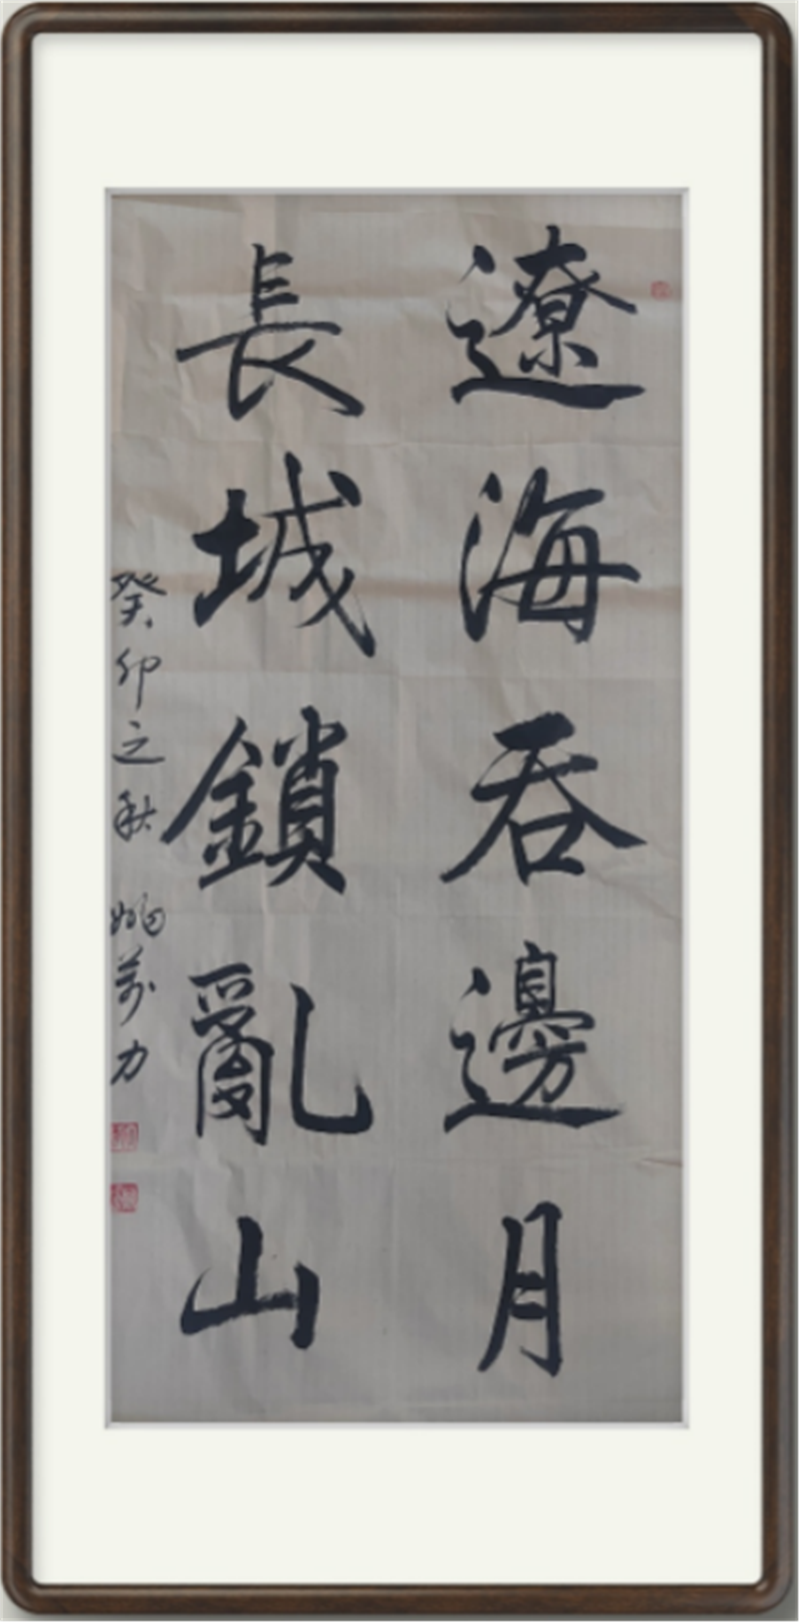 遼海吞邊月
長城鎖亂山
癸卯之秋 姚萬力